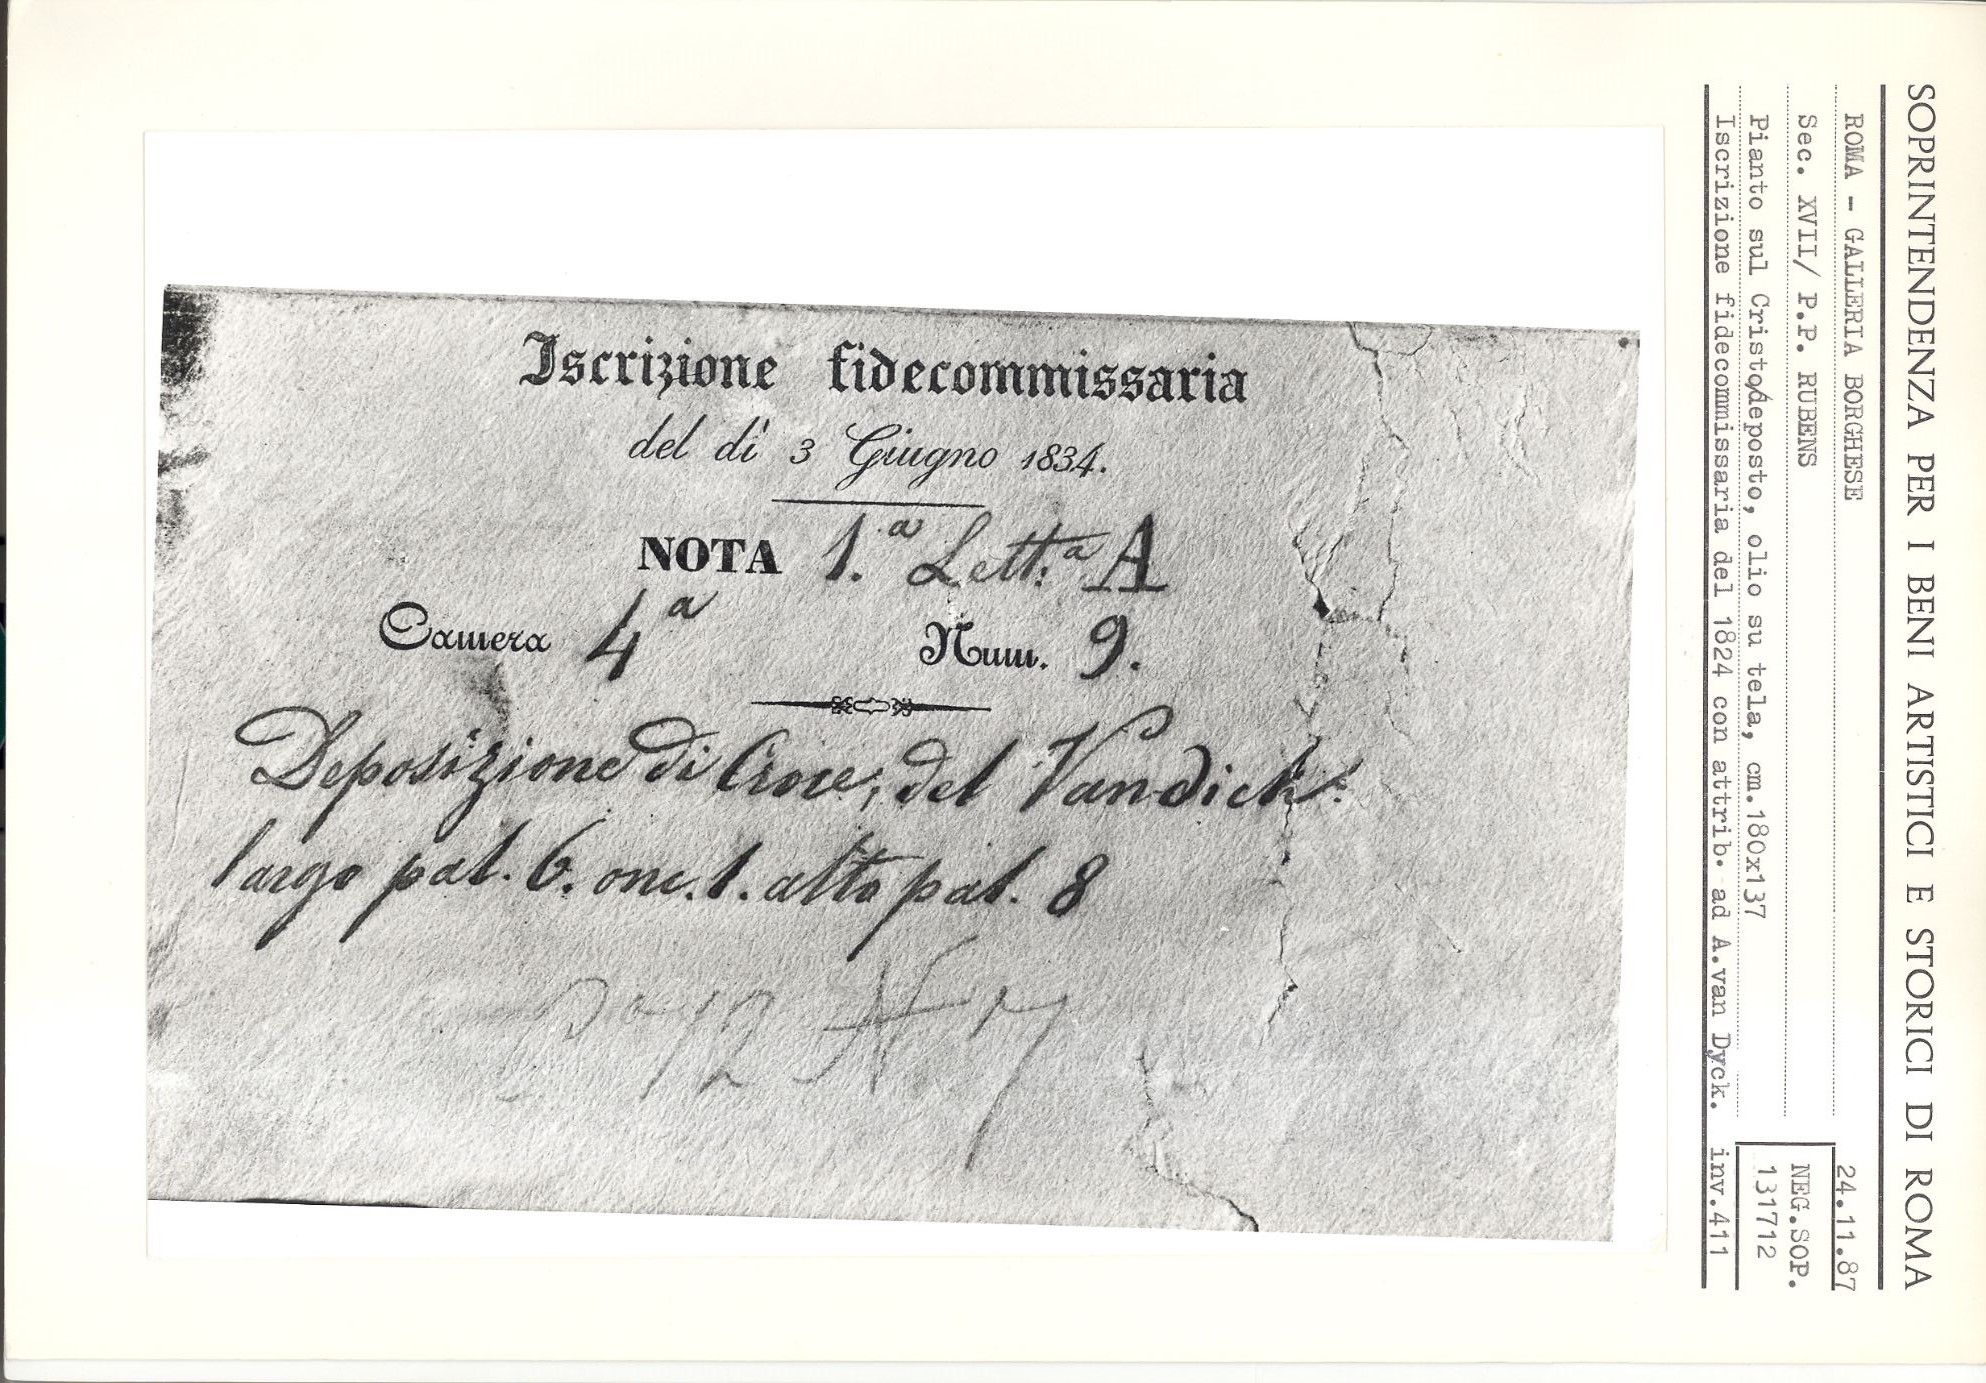 Iscrizione fidecommissaria
del dì 3 Giugno 1834.
NOTA 1.a Lett.a A
Camera 4a Num. 9.
Deposizione di Croce, del Vandich.
largo pal. 6. onc. 1. alto pal. 8
SOPRINTENDENZA PER I BENI ARTISTICI E STORICI DI ROMA
ROMA - GALLERIA BORGHESE
24.11.87
Sec. XVII/ P.P. RUBENS
NEG.SOP.
131712
Pianto sul Cristo/deposto, olio su tela, cm.180x137
Iscrizione fidecommissaria del 1824 con attrib. ad A.van Dyck. inv.411